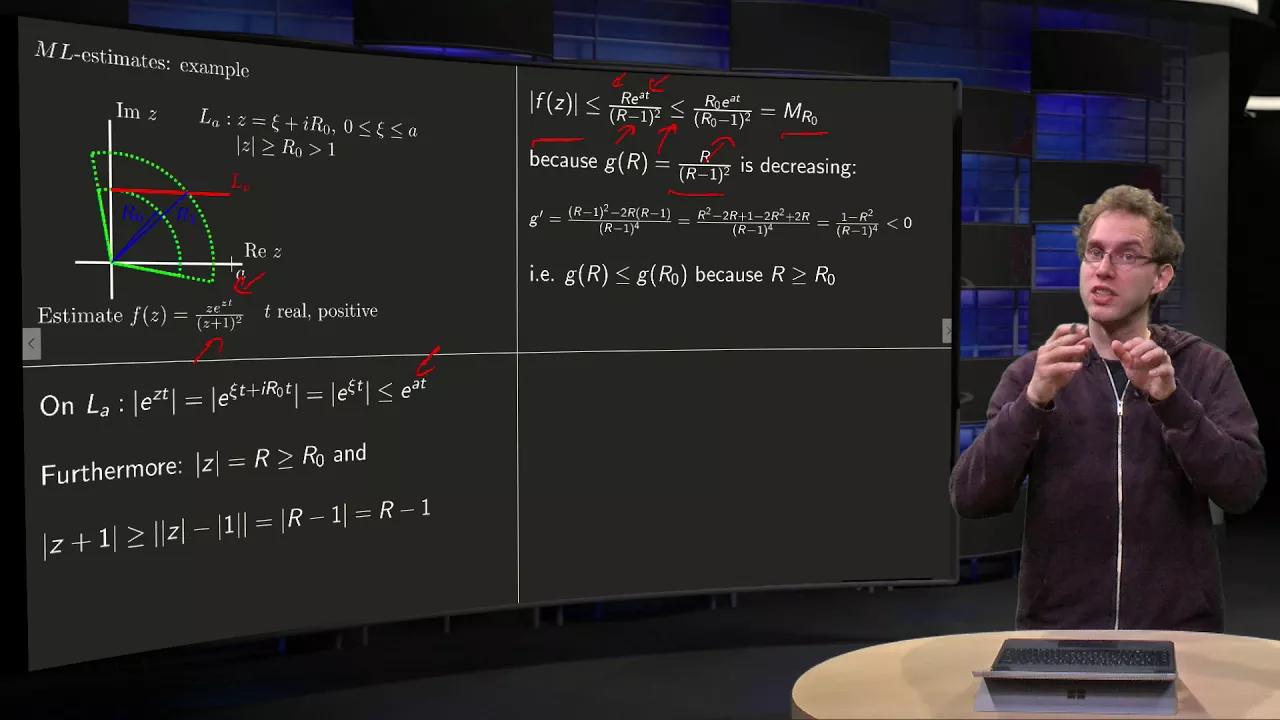 ML-estimates: example
Im z
L_a : z = ξ + iR_0, 0 ≤ ξ ≤ a
|z| ≥ R_0 > 1
L_a
R_0
Re z
a
Estimate f(z) = \frac{ze^{zt}}{(z+1)^2} t real, positive
On L_a : |e^{zt}| = |e^{ξt+iR_0t}| = |e^{ξt}| ≤ e^{at}
Furthermore: |z| = R ≥ R_0 and
|z + 1| ≥ ||z| − |1|| = |R − 1| = R − 1
|f(z)| ≤ \frac{Re^{at}}{(R−1)^2} ≤ \frac{R_0e^{at}}{(R_0−1)^2} = M_{R_0}
because g(R) = \frac{R}{(R−1)^2} is decreasing:
g′ = \frac{(R−1)^2−2R(R−1)}{(R−1)^4} = \frac{R^2−2R+1−2R^2+2R}{(R−1)^4} = \frac{1−R^2}{(R−1)^4} < 0
i.e. g(R) ≤ g(R_0) because R ≥ R_0